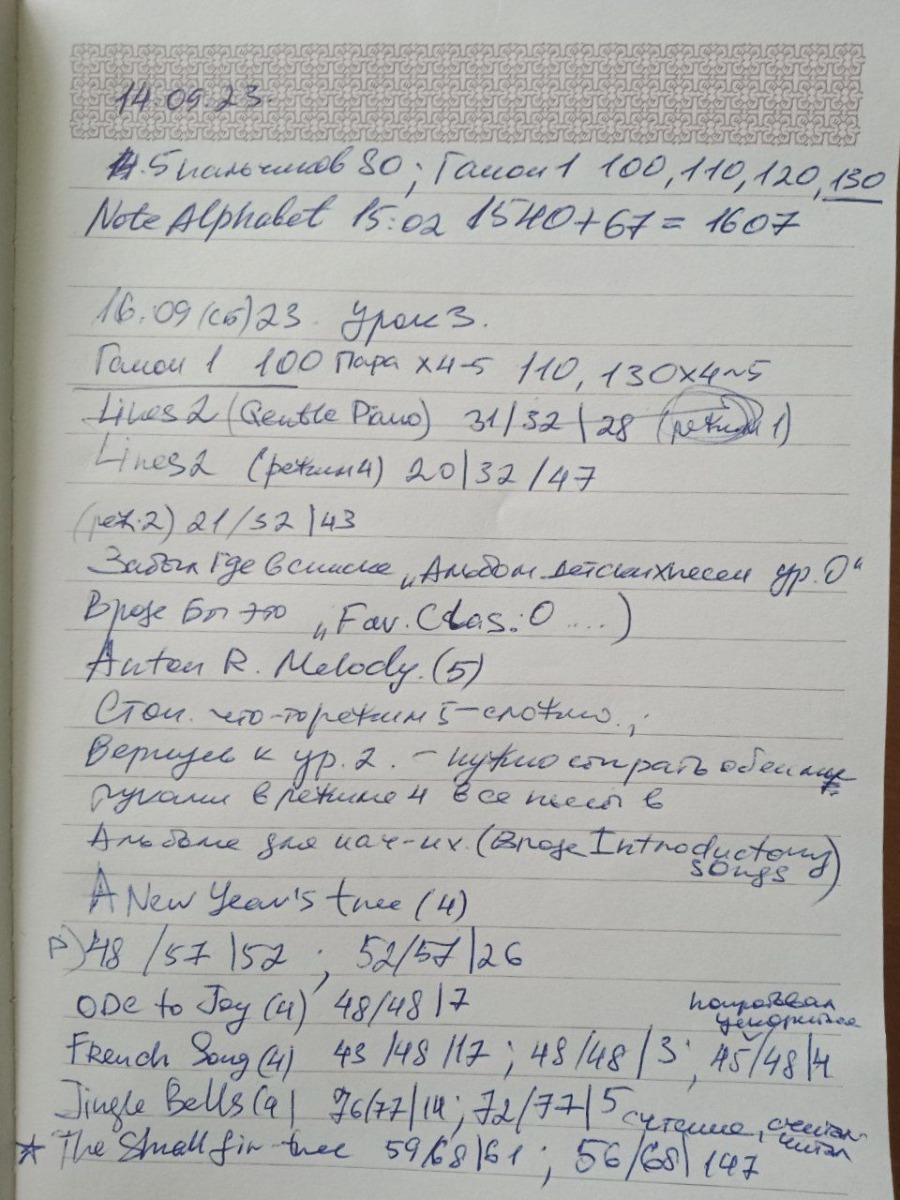 14.09.23.
5 пальчиков 80; Ганон 1 100, 110, 120, 130
Note Alphabet 15:02 1540+67 = 1607
16.09 (сб) 23. Урок 3.
Ганон 1 100 пара x4-5 110, 130x4-5
Lines 2 (Gentle Piano) 31/32|28 (режим 1)
Lines 2 (режим 4) 20|32/47
(реж. 2) 21/32|43
Забыл где в списке „Альбом детских песен ур. 0“
Вроде бы это „Fav. Clas: 0 ....)
Anton R. Melody. (5)
Стоп. что-то режим 5-сложно.;
Вернулся к ур. 2. - нужно сыграть обеими
руками в режиме 4 все песни в
Альбоме для нач-их. (Вроде Introductory
songs)
A New Year's tree (4)
P) 48/57|52; 52/57|26
Ode to Joy (4) 48/48|7
попробовал
French Song (4) 43/48/17; 48/48|3; 45/48|4
Jingle Bells (4) 76/77|14; 72/77|5
считал
* The Small fir-tree 59/68|61; 56/68|147